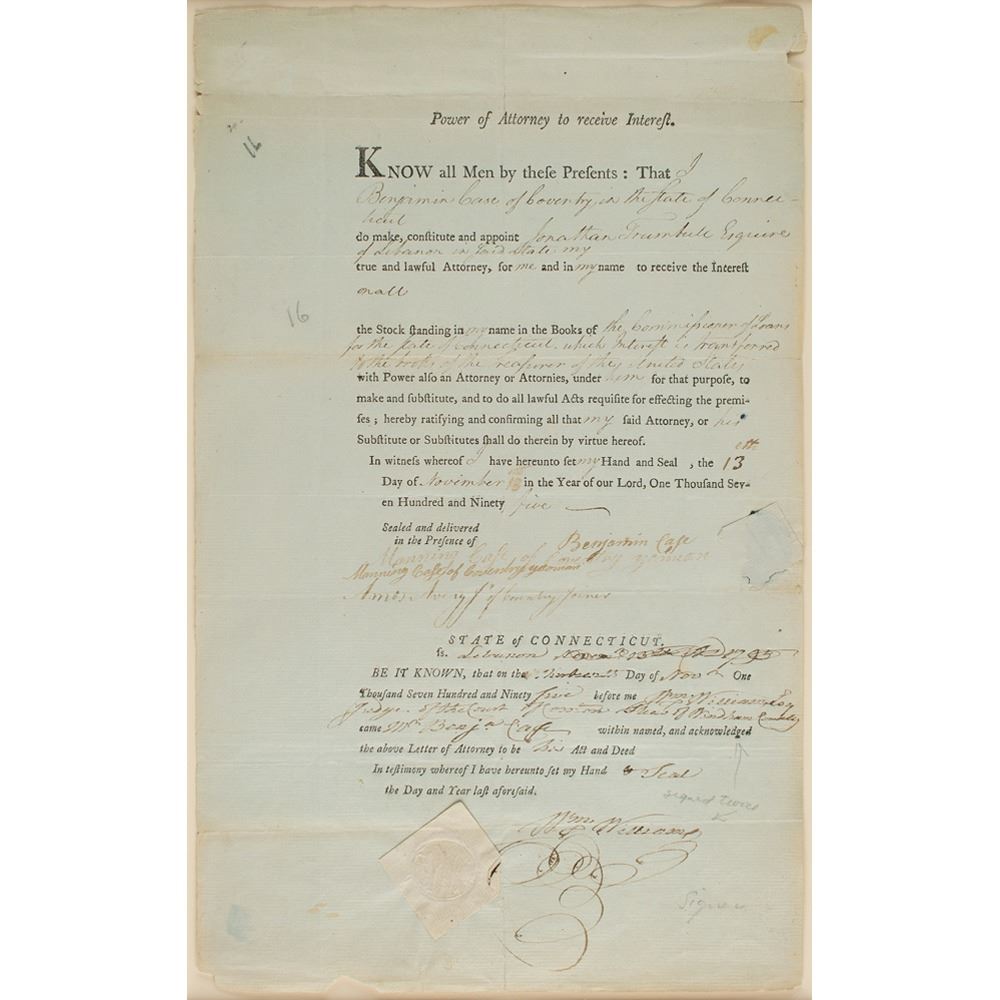 Power of Attorney to receive Intereſt.
16
KNOW all Men by theſe Preſents : That I
Benjimin Case of Coventry, in the State of Connec-
ticut
do make, conſtitute and appoint Jonathan Trumbull Esquire
of Lebanon in said State my
true and lawful Attorney, for me and in my name to receive the Intereſt
on all
16
the Stock ſtanding in my name in the Books of the Commissioner of Loans
for the State of Connecticut which Interest is transferred
to the books of the treasurer of the United States
with Power alſo an Attorney or Attornies, under him for that purpoſe, to
make and ſubſtitute, and to do all lawful Acts requiſite for effecting the premi-
ſes ; hereby ratifying and confirming all that my ſaid Attorney, or his
Subſtitute or Subſtitutes ſhall do therein by virtue hereof.
In witneſs whereof I have hereunto ſet my Hand and Seal , the 13 th
Day of November 13 in the Year of our Lord, One Thouſand Sev-
en Hundred and Ninety five
Sealed and delivered
in the Preſence of
Benjamin Case
Manning Case of Coventry yeoman
Manning Case of Coventry yeoman
Amos Avery Jr of Coventry Joiner
STATE of CONNECTICUT.
ſs. Lebanon Novr 13th 1795
BE IT KNOWN, that on the thirteenth Day of Novr One
Thouſand Seven Hundred and Ninety five before me Wm Williams Esq
Judge of the Court of Common Pleas of Windham County
came Mr Benja Case within named, and acknowledged
the above Letter of Attorney to be his Act and Deed
In teſtimony whereof I have hereunto ſet my Hand & Seal
the Day and Year laſt aforeſaid.
signed twice
Wm Williams
Signer